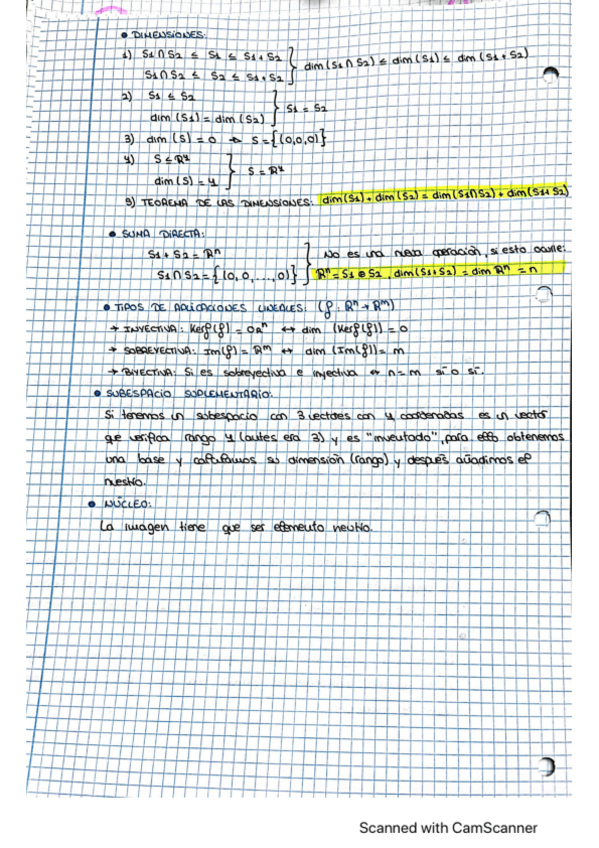 • DIMENSIONES:
1) S1 ∩ S2 ≤ S1 ≤ S1 + S2
S1 ∩ S2 ≤ S2 ≤ S1 + S2 } dim (S1 ∩ S2) ≤ dim (S1) ≤ dim (S1 + S2)
2) S1 ≤ S2
dim (S1) = dim (S2) } S1 = S2
3) dim (S) = 0 → S = {(0,0,0)}
4) S ≤ R⁴
dim (S) = 4 } S = R⁴
5) TEOREMA DE LAS DIMENSIONES: dim(S1) + dim (S2) = dim(S1∩S2) + dim(S1+S2)
• SUMA DIRECTA:
S1 + S2 = Rⁿ
S1 ∩ S2 = {(0, 0, ..., 0)} } No es una nueva operación, si esto ocurre:
Rⁿ = S1 ⊕ S2, dim(S1+S2) = dim Rⁿ = n
• TIPOS DE APLICACIONES LINEALES: (f: Rⁿ → Rᵐ)
→ INYECTIVA: Kerf(f) = 0Rⁿ ↔ dim (Kerf(f)) = 0
→ SOBREYECTIVA: Im(f) = Rᵐ ↔ dim (Im(f)) = m
→ BIYECTIVA: Si es sobreyectiva e inyectiva ↔ n = m sí o sí.
• SUBESPACIO SUPLEMENTARIO:
Si tenemos un subespacio con 3 vectores con 4 coordenadas es un vector
que verifica rango 4 (antes era 3) y es "inventado", para ello obtenemos
una base y calculamos su dimensión (rango) y después añadimos el
nuestro.
• NÚCLEO:
La imagen tiene que ser elemento neutro.
Scanned with CamScanner